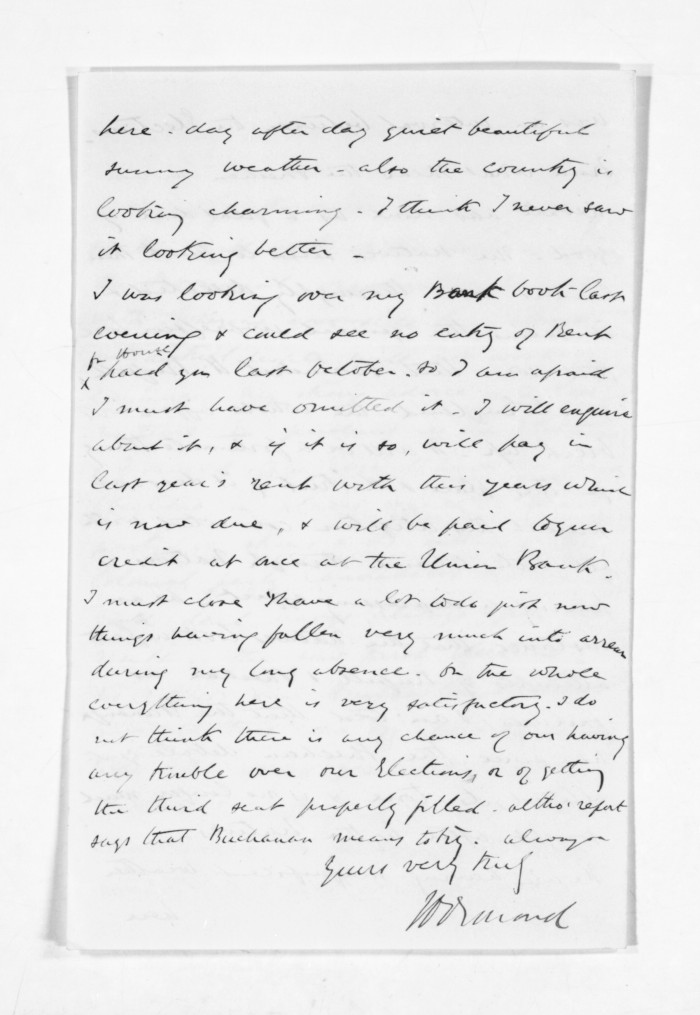 here. day after day quiet beautiful
sunny weather - also the country is
looking charming. I think I never saw
it looking better -
I was looking over my Bank book last
evening & could see no entry of Rent
for House
paid you last October. so I am afraid
I must have omitted it. I will enquire
about it, & if it is so, will pay in
last year's rent with this years which
is now due, & will be paid to your
credit at once at the Union Bank.
I must close I have a lot to do just now
things having fallen very much into arrear
during my long absence. On the whole
everything here is very satisfactory. I do
not think there is any chance of our having
any trouble over our Elections, or of getting
the third seat properly filled. altho' report
says that Buchanan means to try. always
Yours very truly
JD Ormond